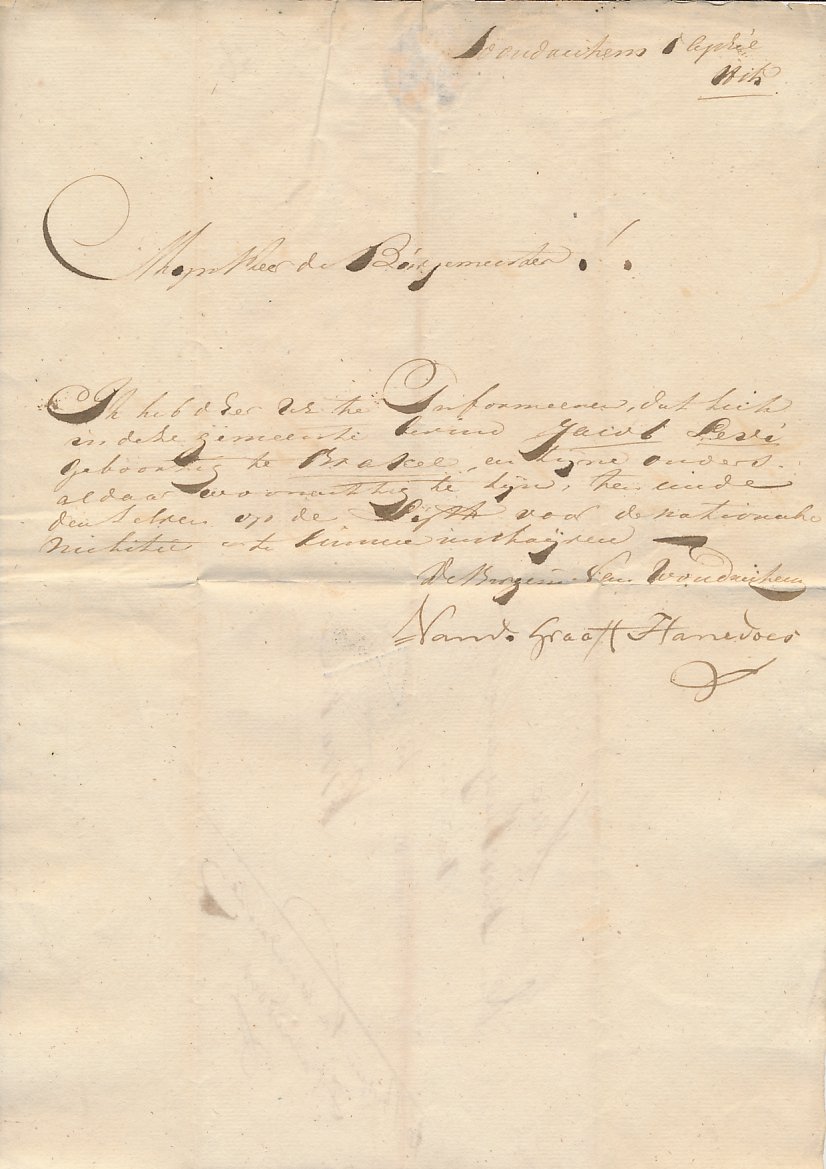 Woudrichem 6 April
Mijn Heer de Burgemeester!
Ik heb d'Eer UE te Informeeren, dat zich
in deze gemeente bevind Jacob Levi
geboortig te Brakel, en zijne ouders
aldaar woonachtig te zijn, ten einde
den zelven op de Lijst voor de nationale
Militie te kunnen inschrijven
De Burgem van Woudrichem
V and. Graaff Hanedoes